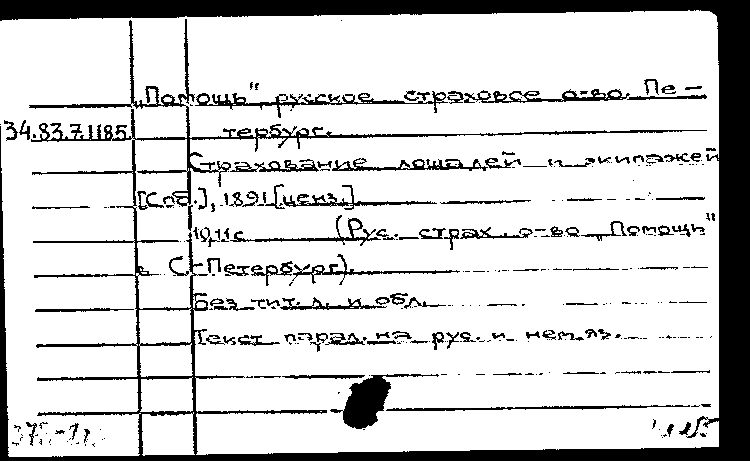 „Помощь", русское страховое о-во. Пе-
34.83.7.1185. тербург.
Страхование лошадей и экипажей
[Спб.], 1891 [ценз.].
10,11 с. (Рус. страх. о-во „Помощь"
в С.-Петербург).
Без тит. л. и обл.
Текст парал. на рус. и нем. яз.